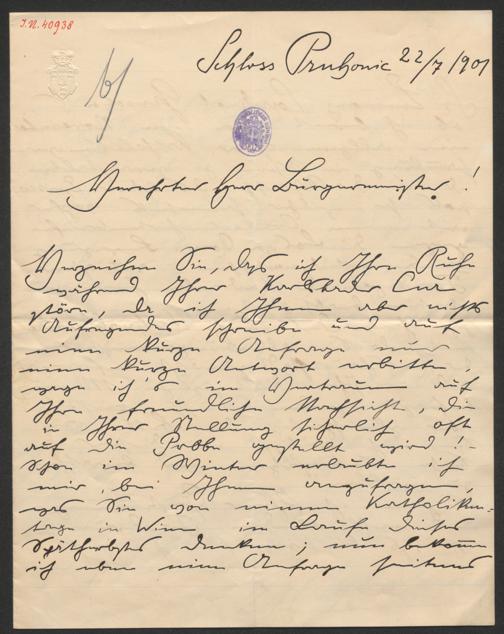 I.N. 40938
Schloss Pruhonic 22/7 1901
Verehrter Herr Bürgermeister!
Verzeihen Sie, dass ich Ihre Ruhe
während Ihrer Karlsbader Cur
störe, da ich Ihnen aber nichts
Aufregendes schreibe und auf
eine kurze Anfrage nur
eine kurze Antwort erbitte,
wage ich's im Vertrauen auf
Ihre freundliche Nachsicht, die
in Ihrer Stellung sicherlich oft
auf die Probe gestellt wird! –
Schon im Winter erlaubte ich
mir, bei Ihnen anzufragen
was Sie von einem Katholiken-
tage in Wien im Laufe dieses
Spätherbstes denken; nun bekomme
ich eben eine Anfrage seitens